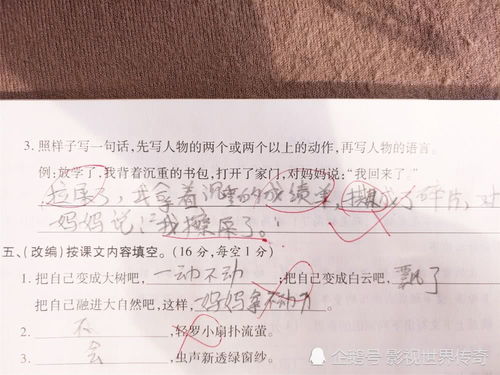 3. 照样子写一句话,先写人物的两个或两个以上的动作,再写人物的语言。
例:放学了,我背着沉重的书包,打开了家门,对妈妈说:“我回来了”
拉屎了,我拿着沉重的成绩单,撕成了碎片,对
妈妈说:“我擦屎了。”
五、(改编)按课文内容填空。(16分,每空1分)
1. 把自己变成大树吧, 一动不动 ;把自己变成白云吧, 飘了
把自己融进大自然吧,这样, 妈妈拿不动刀 。
2. 不 ,轻罗小扇扑流萤。
3. 会 ,虫声新透绿窗纱。
企鹅号 影视世界传奇